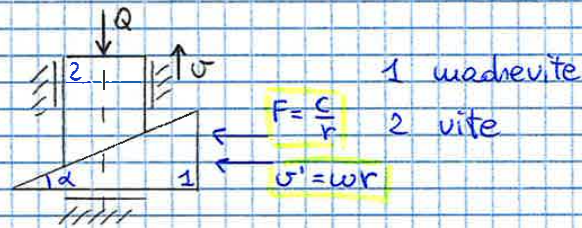 Q
2
v
1 madrevite
F = C/r
2 vite
α
1
v' = ωr